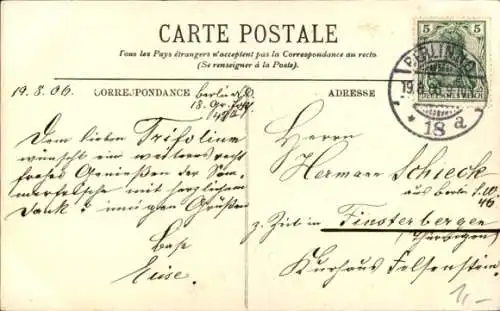 CARTE POSTALE
Tous les Pays étrangers n'acceptent pas la Correspondance au recto.
(Se renseigner à la Poste).
5 5
BERLIN
19.8.06
* 18 a
19.8.06
CORRESPONDANCE
Berlin
18.
ADRESSE
Dem lieben Trifolium
wünscht ein weiteres recht
frohes Genießen der Som-
mit herzlichem
Dank & innigen Grüßen
Base
Elise.
Herrn
Hermann Schieck
aus Berlin S.W.
46
z. Zeit in Finsterbergen
(Thüringen)
Kurhaus Felsenstein.
1,-